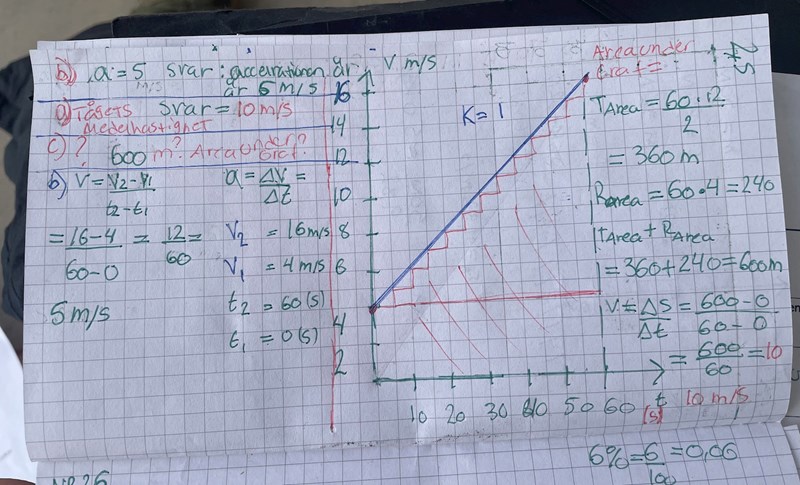 b) a = 5 svar: accelerationen är
är 5 m/s
a) Tågets svar = 10 m/s
Medelhastighet
c) ? 600 m? Area under
Graf?
b) V = V2 - V1 / t2 - t1
a = ΔV / Δt =
= 16 - 4 / 60 - 0 = 12 / 60 =
5 m/s
V2 = 16 m/s
V1 = 4 m/s
t2 = 60 (s)
t1 = 0 (s)
V m/s
16
14
12
10
8
6
4
2
K = 1
10 20 30 40 50 60 t
(s)
Area under
Graf =
TArea = 60 · 12 / 2
= 360 m
RArea = 60 · 4 = 240
TArea + RArea
= 360 + 240 = 600m
V = ΔS / Δt = 600 - 0 / 60 - 0
= 600 / 60 = 10
10 m/s
6% = 6 / 100 = 0,06